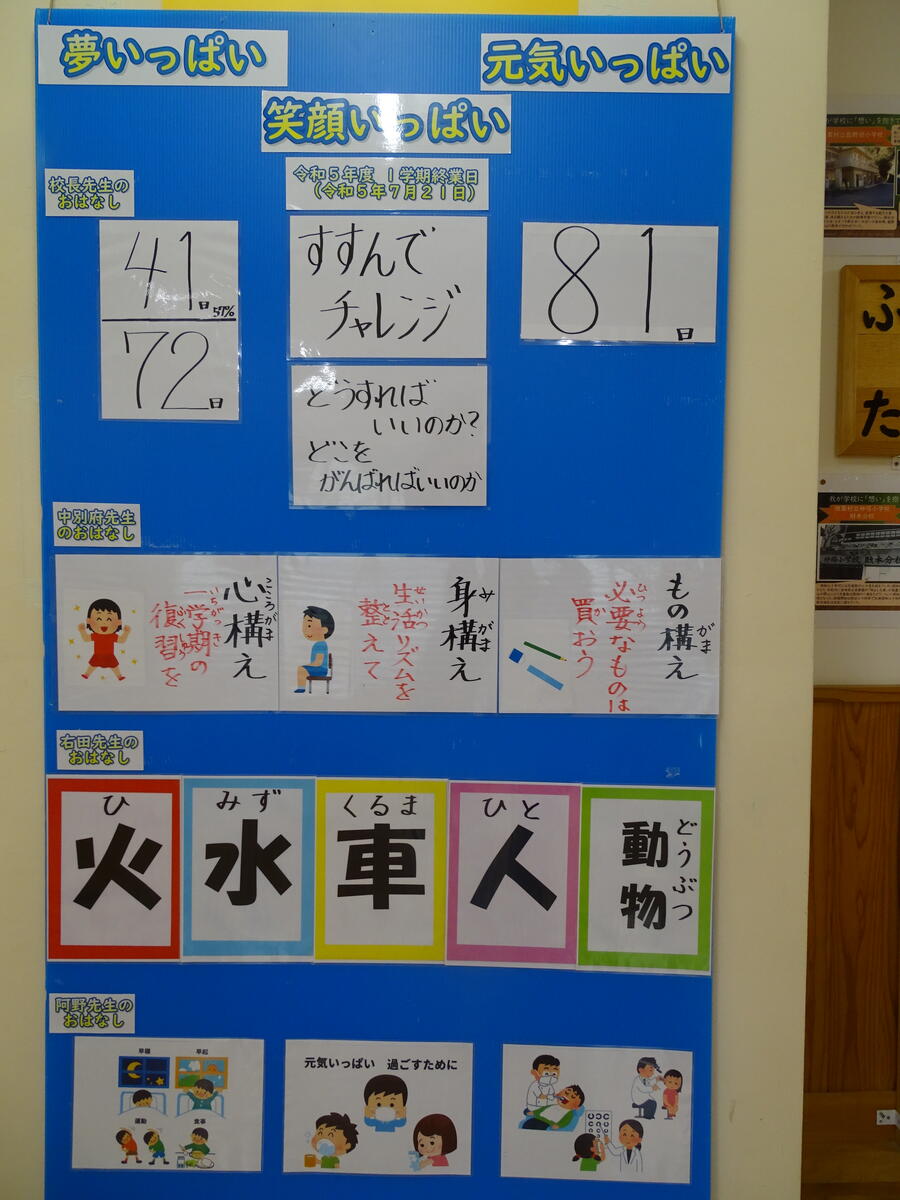 夢いっぱい
元気いっぱい
笑顔いっぱい
校長先生の
おはなし
令和5年度 1学期終業日
(令和5年7月21日)
41日
57%
72日
すすんで
チャレンジ
81日
どうすれば
いいのか?
どこを
がんばればいいのか
中別府先生
のおはなし
もの構え
がま
必要なものは
ひつよう
買おう
か
身構え
み がま
生活リズムを
せいかつ
整えて
心構え
こころがま
一学期の
いちがっき
復習を
右田先生の
おはなし
ひ
火
みず
水
くるま
車
ひと
人
どうぶつ
動物
阿野先生の
おはなし
早寝
早起
運動
食事
元気いっぱい 過ごすために
ふ
た